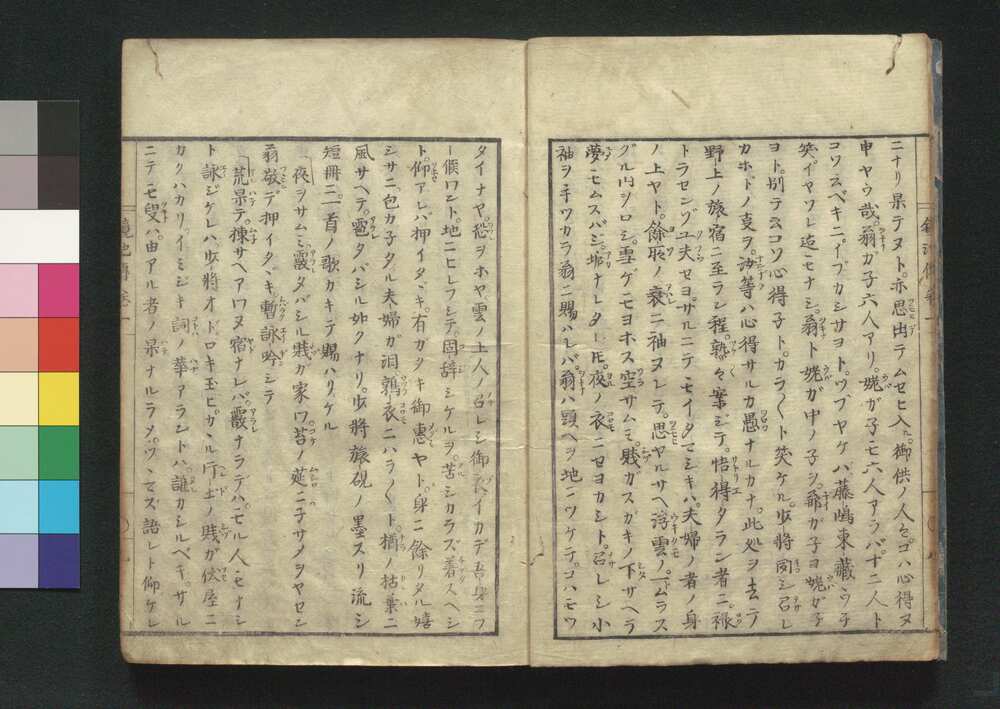 ニナリ果テヌト。亦思出テムセヒ入ル。御供ノ人々ゴハ心得ヌ
申ヤウ哉。翁ガ子六人アリ。姥ガ子モ六人アラバ。十二人ト
コソ云ベキニ。イブカシサヨト。ツブヤケハ。藤嶋東蔵ウチ
笑イヤソレ迄モナシ。翁ト姥ガ中ノ子ヲ。爺ガ子ヨ姥ガ子
ヨト。別テ云コソ心得子トカラ〱ト笑ケル。少将
カホドノ支ヲ汝等ハ心得サルカ愚ナルカナ。此処ヲ去テ
野上ノ旅宿ニ至ラン程。熟々案ジテ。悟得タラン者ニ。禄
トラセンゾ。夫ヨサルニテモイタマシキハ夫婦ノ者ノ身
ノ上ヤト。餘所ノ哀ニ袖ヌレテ。思ヤルサヘ浮雲ノ。一ムラス
グル内ヲロシ。雪ゲニモヨホス空サムミ。賎ガスガキノ下サヘラ
夢モムスバジ。垢ナレタレ𪜈。夜ノ衣ニセヨカシト。召レシ小
袖ヲ手ツカラ翁ニ賜ハレバ。翁ハ頭ヘヲ地ニツケテ。コハモツ
タイナヤ。恐ヲホヤ雲ノ上人ノ召レシ御衣。イカデ吾身ニフ
レ候ワント。地ニヒレフシテ固辞シケルヲ。苦シカラズ着スヘシ
ト。仰アレバ押イタヾキ。有ガタキ御惠ヤト。身ニ餘リタル嬉
シサニ。包カ子タル夫婦ガ泪鶉衣ニハラ〱ト。楢ノ枯葉ニ
風サヘテ。霰タバシル如クナリ。少將旅硯ノ墨スリ流シ
短冊ニ。一首ノ歌カキテ賜ハリケル
夜ヲサムミ霰タバシル賎ガ家ワ苔ノ莚ニ子サメヲヤセン
翁敬デ押イタヾキ暫詠吟シテ
荒果テ。棟サヘアワヌ宿ナレバ。霰ナラデハ。モル人モナシ
ト詠ジケレハ。少將オドロキ玉ヒ。カヽル片土ノ賎ガ伏屋ニ
カクハカリ。イミジキ詞ノ華アラントハ。誰カシルベキ。サル
ニテモ叟ハ。由アル者ノ果ナルラメ。ツヽマズ語レト仰ケレ